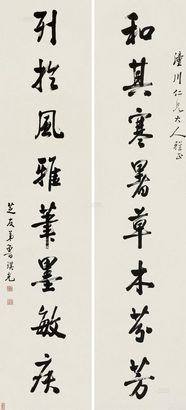 潼川仁兄大人雅正
和其寒暑草木芬芳
列於風雅筆墨敏疾
芝友弟曹瑛光